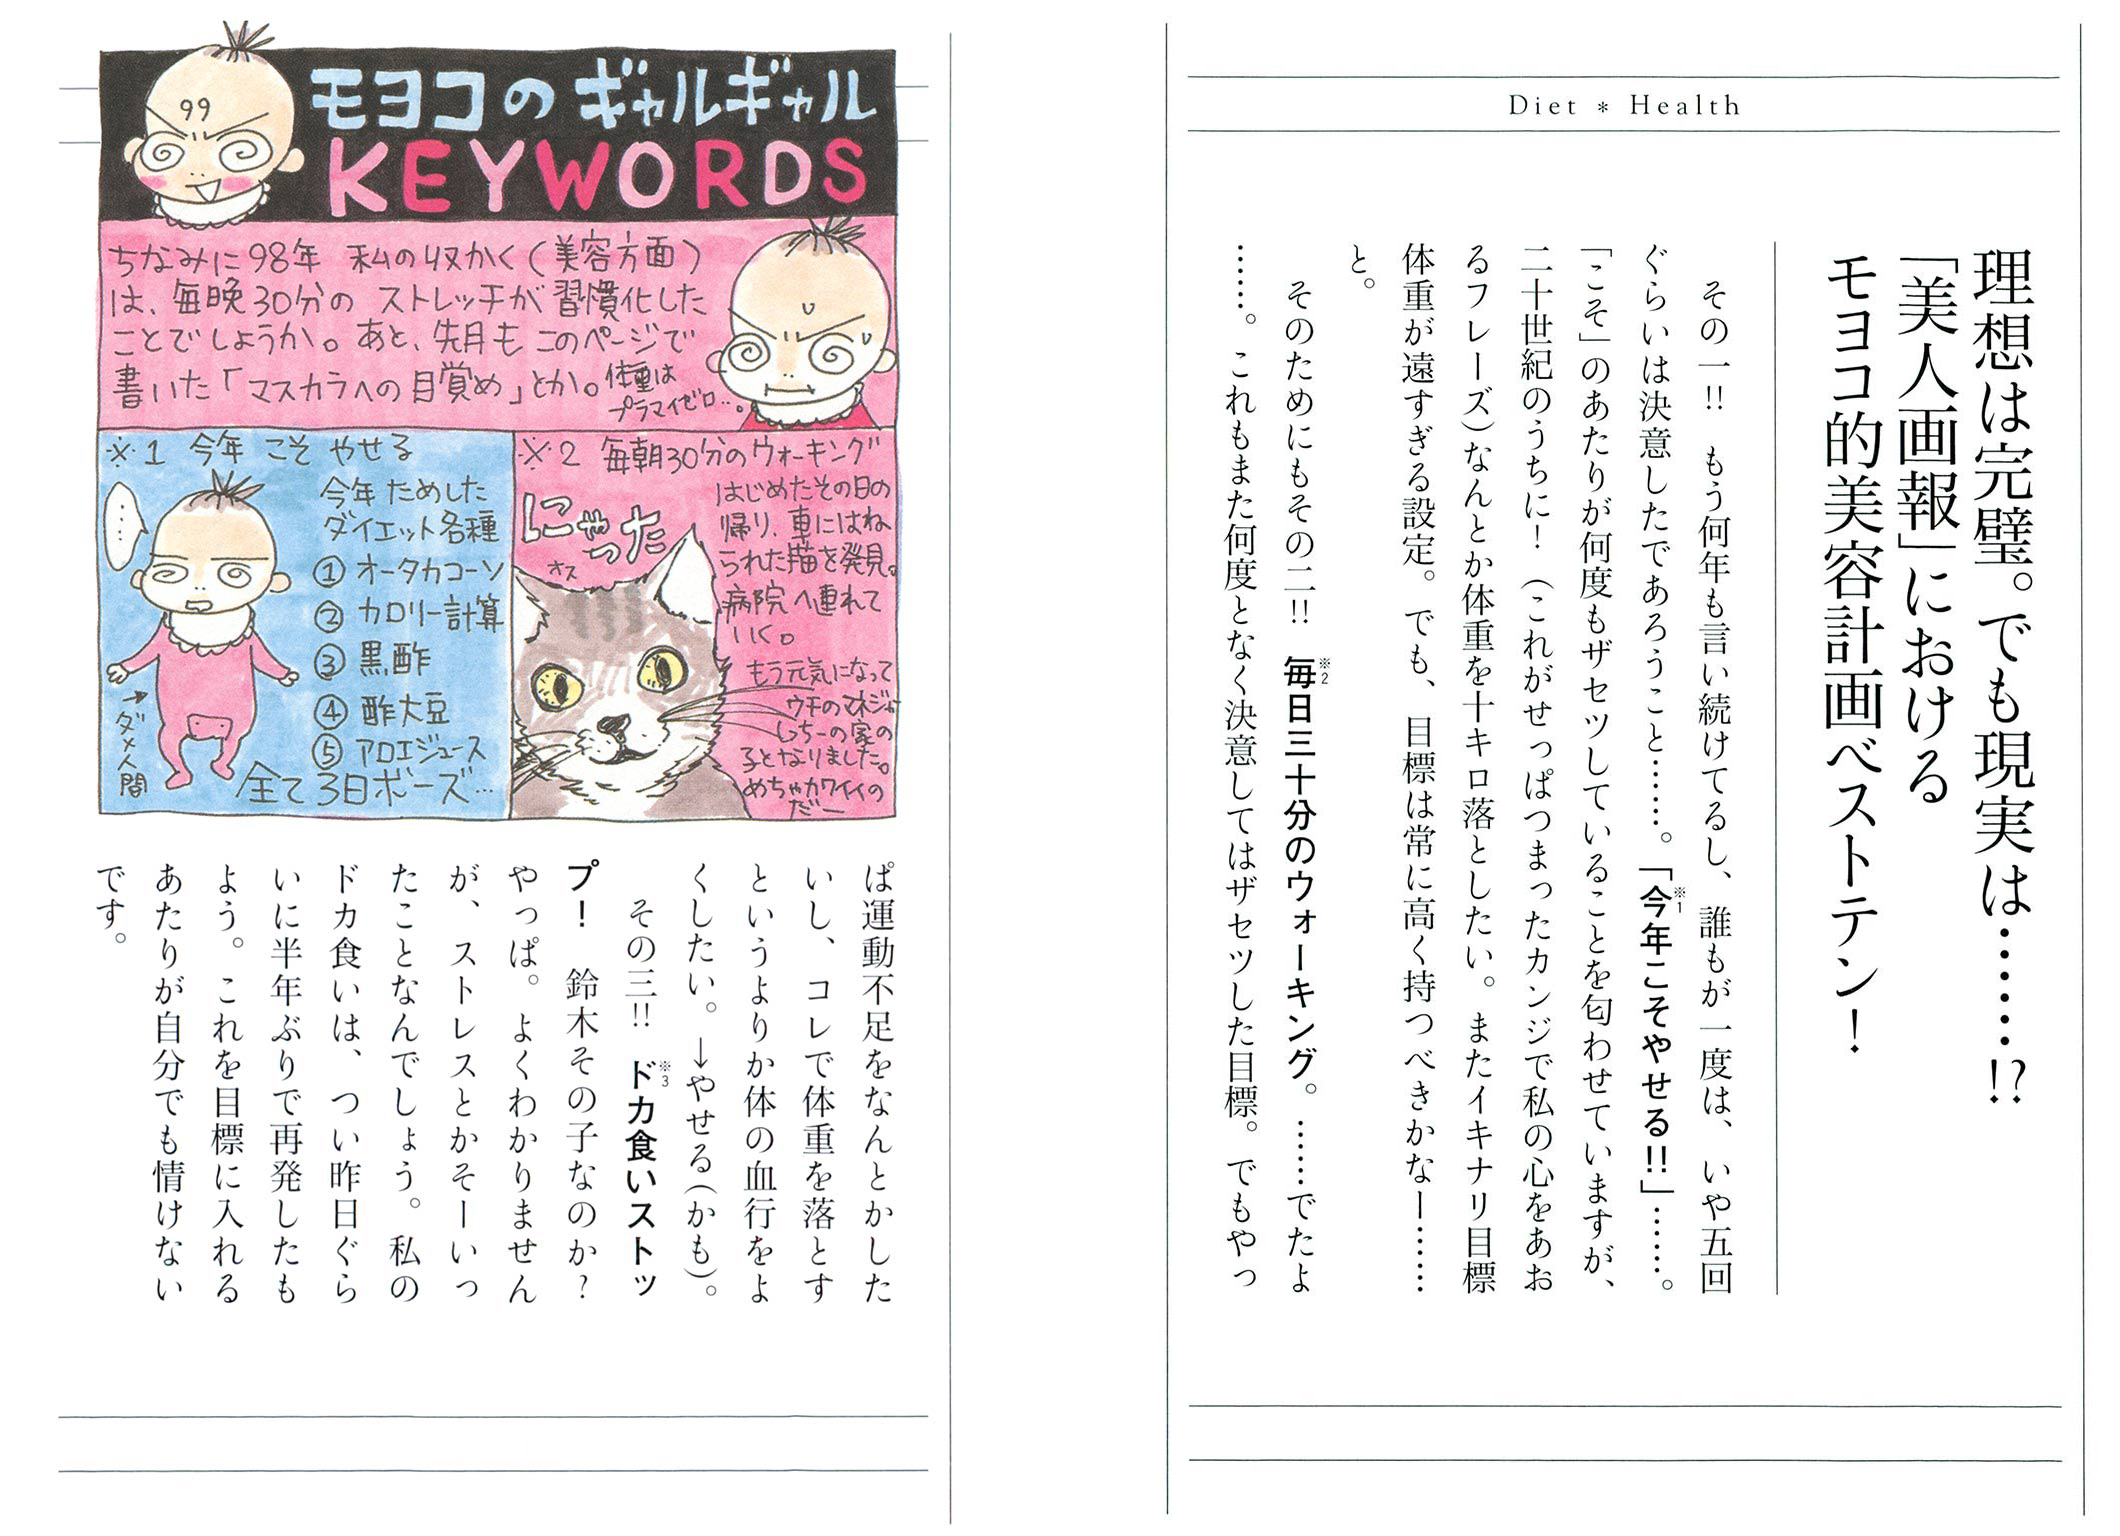 Diet * Health
理想は完璧。でも現実は……!?
「美人画報」における
モヨコ的美容計画ベストテン！
その一!! もう何年も言い続けてるし、誰もが一度は、いや五回
ぐらいは決意したであろうこと……。「※1今年こそやせる!!」……。
「こそ」のあたりが何度もザセツしていることを匂わせていますが、
二十世紀のうちに！（これがせっぱつまったカンジで私の心をあお
るフレーズ）なんとか体重を十キロ落としたい。またイキナリ目標
体重が遠すぎる設定。でも、目標は常に高く持つべきかなー……
と。
そのためにもその二!! ※2毎日三十分のウォーキング。……でたよ
……。これもまた何度となく決意してはザセツした目標。でもやっ
モヨコのギャルギャル
KEYWORDS
99
ちなみに98年 私の収かく(美容方面)
は、毎晩30分の ストレッチが習慣化した
ことでしょうか。あと、先月も このページで
書いた「マスカラへの目覚め」とか。
体重は
プラマイゼロ…。
※1 今年 こそ やせる
……
今年 ためした
ダイエット各種
①オータカコーソ
②カロリー計算
③黒酢
④酢大豆
⑤アロエジュース
全て3日ボーズ…
→ダメ人間
※2 毎朝30分のウォーキング
はじめたその日の
帰り、車にはね
られた猫を発見。
病院へ連れて
いく。
にゃった
オス
もう元気になって
ウチのマネジャ
しっちーの家の
子となりました。
めちゃカワイイの
だー
ぱ運動不足をなんとかした
いし、コレで体重を落とす
というよりか体の血行をよ
くしたい。→やせる(かも)。
その三!! ※3ドカ食いストッ
プ！ 鈴木その子なのか？
やっぱ。よくわかりません
が、ストレスとかそーいっ
たことなんでしょう。私の
ドカ食いは、つい昨日ぐら
いに半年ぶりで再発したも
よう。これを目標に入れる
あたりが自分でも情けない
です。